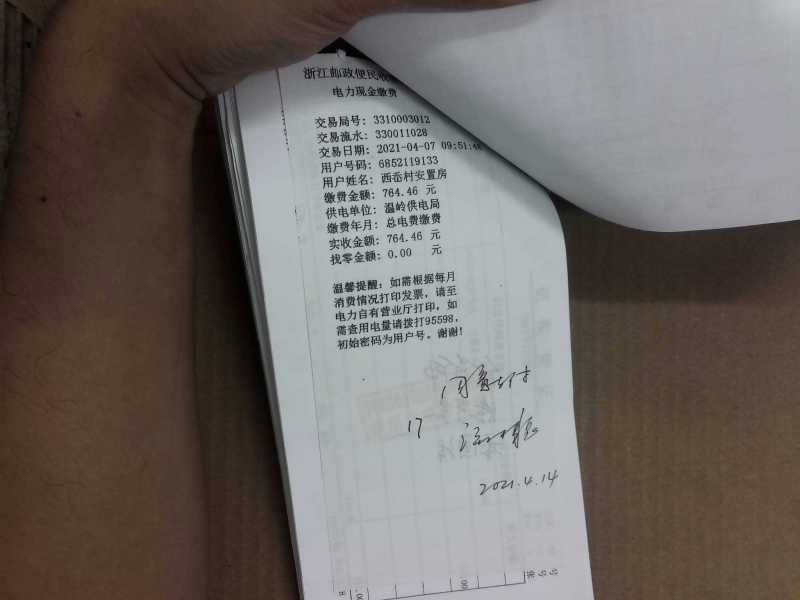 浙江邮政便民收
电力现金缴费
交易局号: 3310003012
交易流水: 330011028
交易日期: 2021-04-07 09:51:48
用户号码: 6852119133
用户姓名: 西岙村安置房
缴费金额: 764.46 元
供电单位: 温岭供电局
缴费年月: 总电费缴费
实收金额: 764.46 元
找零金额: 0.00 元
温馨提醒: 如需根据每月
消费情况打印发票, 请至
电力自有营业厅打印, 如
需查用电量请拨打95598,
初始密码为用户号。谢谢!
同意支付
17
2021.4.14